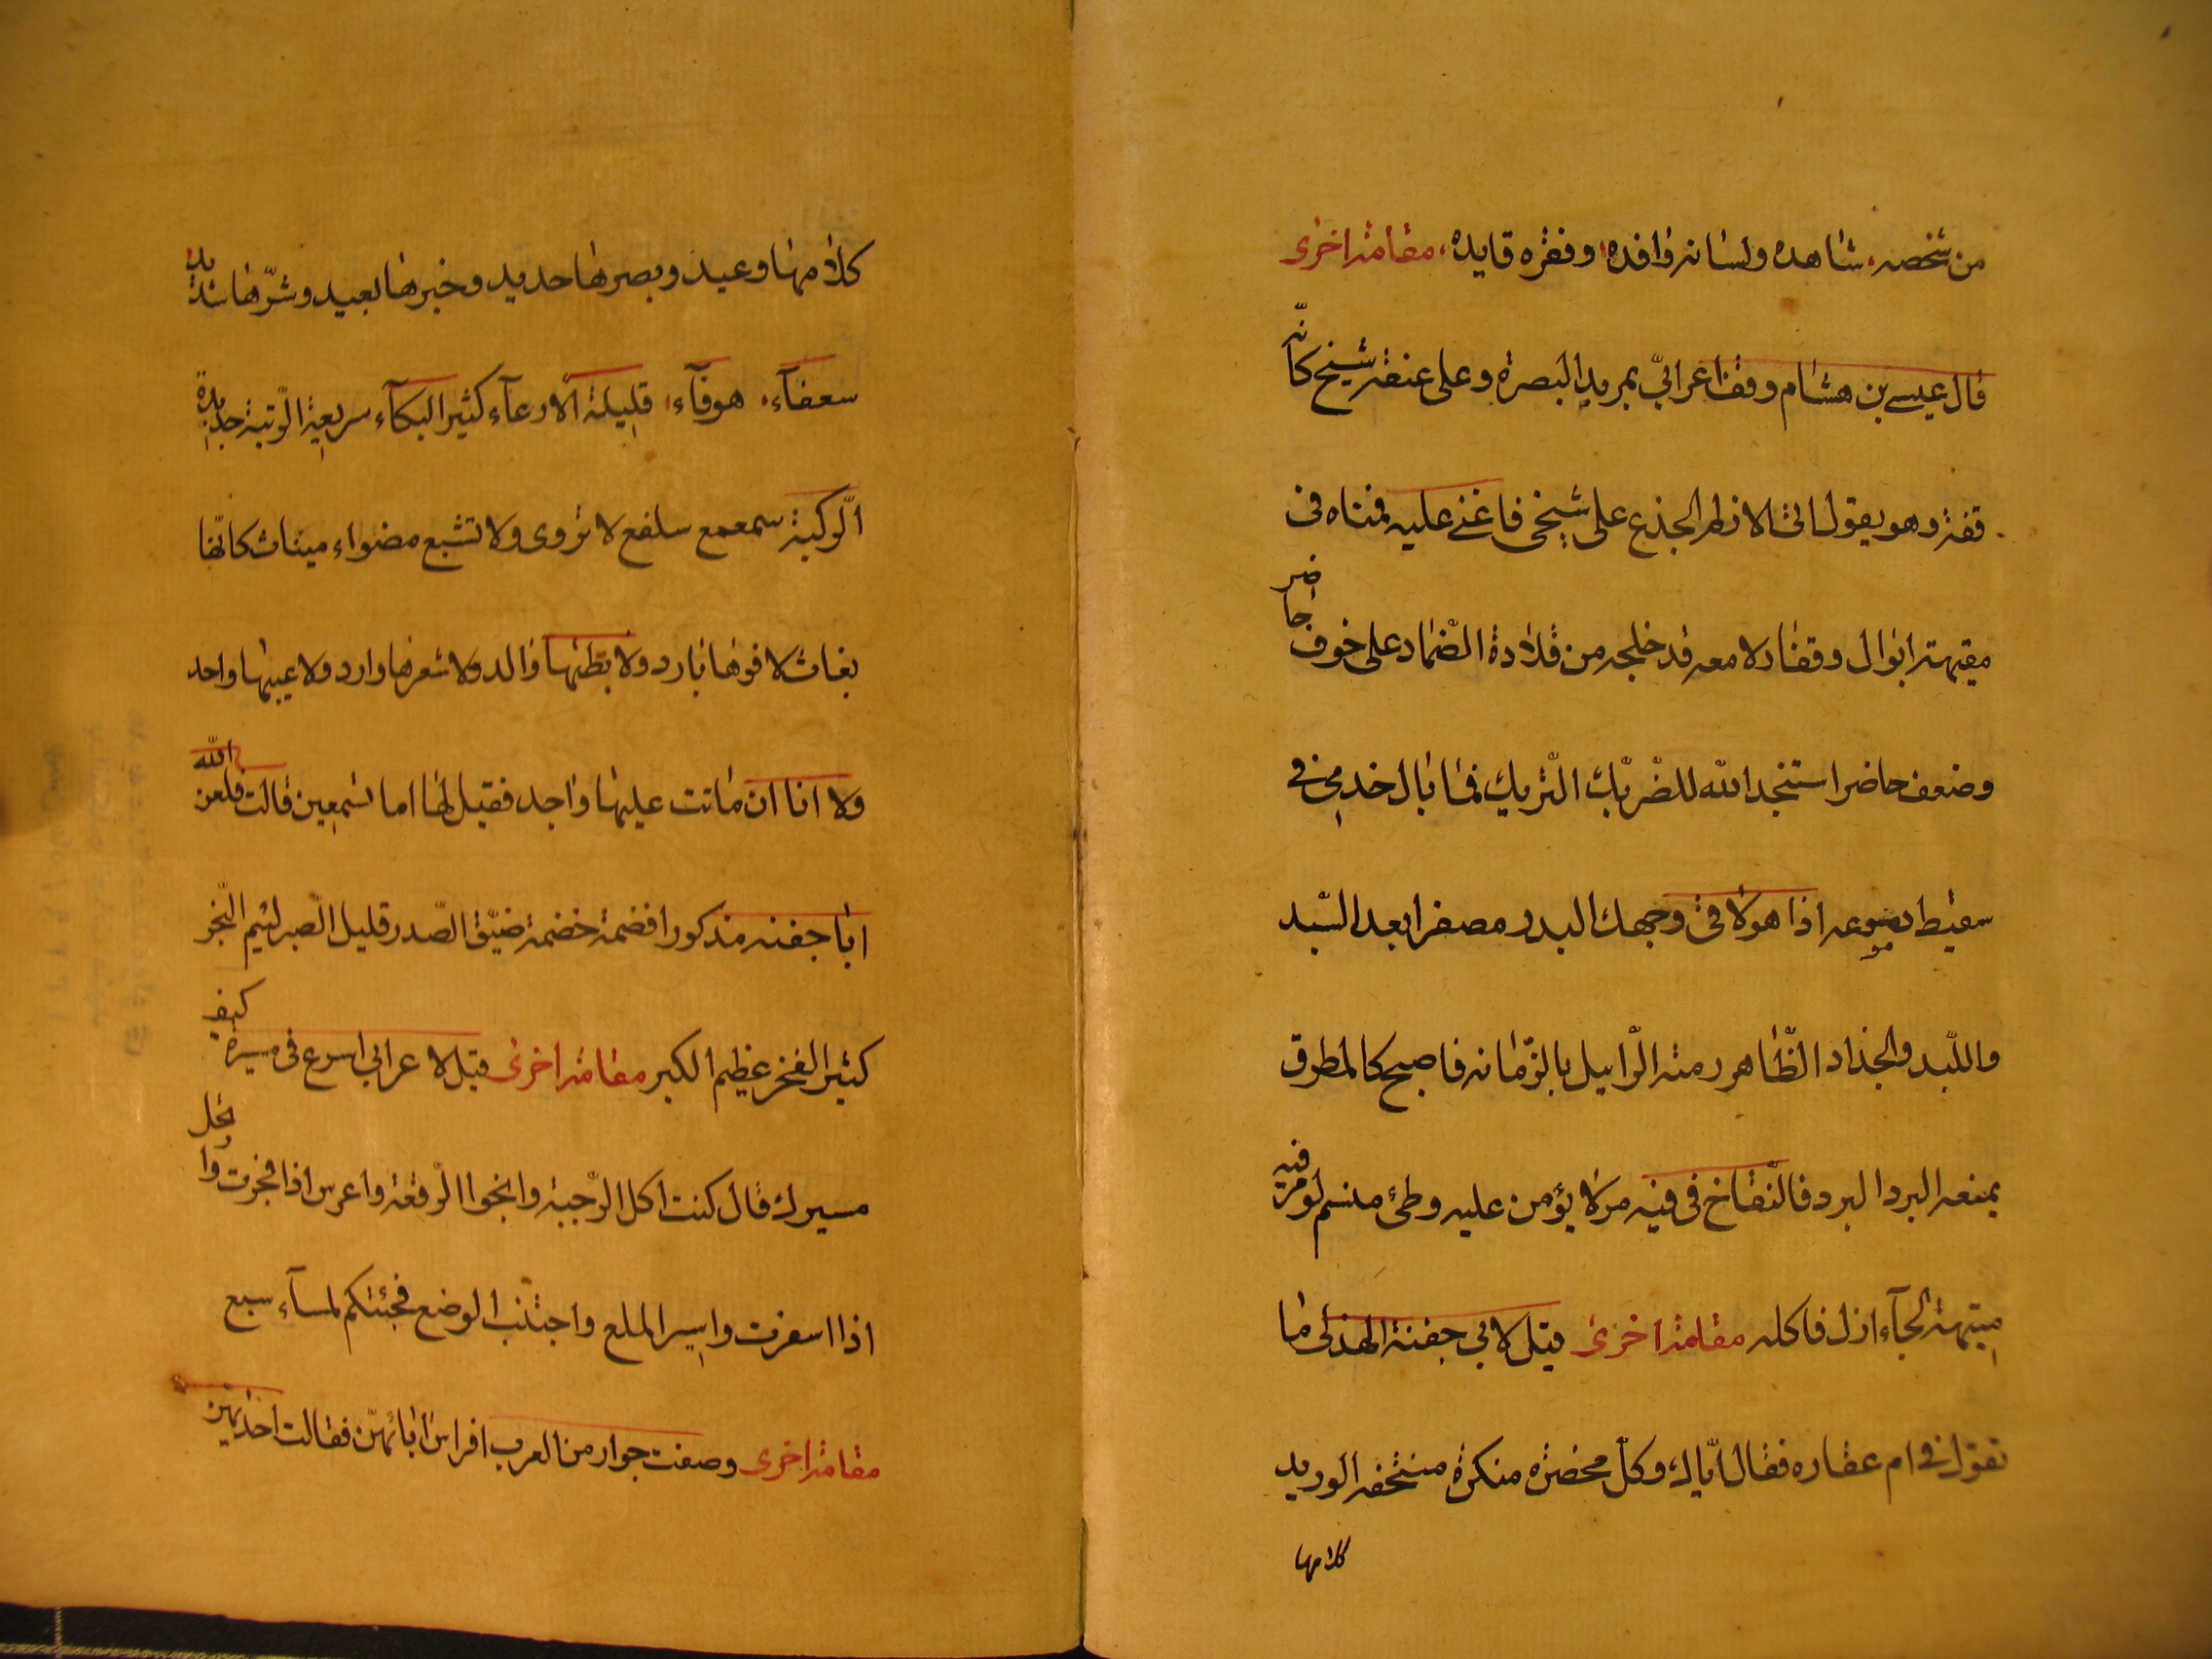 من شخصه شاهده ولسانه وافده وفقره قايده مقامة اخرى
قال عيسى بن هشام وقفنا عرابيّ بمربد البصرة وعلى عنقه شيخ كانّه
قفة وهو يقول الازلم الجذع على شيخى فاغنى عليه فمناه فى
ابوال معه قد خلجه من قلادة الضماد على خوف حاضر
وضعف حاضر استنجد الله للضّريك التّريك فما بال خدمى فى
سقيط اذا هؤلا فى وجهك البدر مصفرا بعد السّبد
واللّبد والجذاد الظّاهر منه الرّابيل بالزّمانه فاصبح كالمطرق
يمنعه البرد البرد فالنفاخ فى فيه مرّ لا يؤمن عليه وطئ منسم لو مرّ فيه
ازل فاكله مقامة اخرى قيل لابى جفنة الهذلى ما
تقول فى ام عقاره فقال ايّاك وكلّ محضرة منكرة منتخفه الوريد
كلامها
كلامها وعيد وبصرها حديد وخيرها بعيد وشرّها شديد
سعفآء هوفآء قليلة الارعآء كثير البكآء سريعة الوتبة حديدة
الرّكبة سمعمع سلفع لا تروى ولا تشبع مضواء ميناث كانّها
بغاث لا فوها بارد ولا بطنها والد ولا شعرها وارد ولا عيبها واحد
ولا انا ان ماتت عليها واجد فقيل لها اما تسمعين قالت فلعن الله
ابا جفنه مذكورا فضمة خضمة ضيّق الصّدر قليل الصّبر لئيم النّجر
كثير الفخر عظيم الكبر مقامة اخرى قيل لاعرابي اسرع فى مسيره كيف
مسيرك قال كنت اكل الوجبة وانجوا الوقعة واعرس اذا فجرت وارتحل
اذا اسفرت واسير الملع واجتنب الوضع فجئتكم لمسآء سبع
مقامة اخرى وصفت جوار من العرب افراس ابائهنّ فقالت احدٰيهنّ